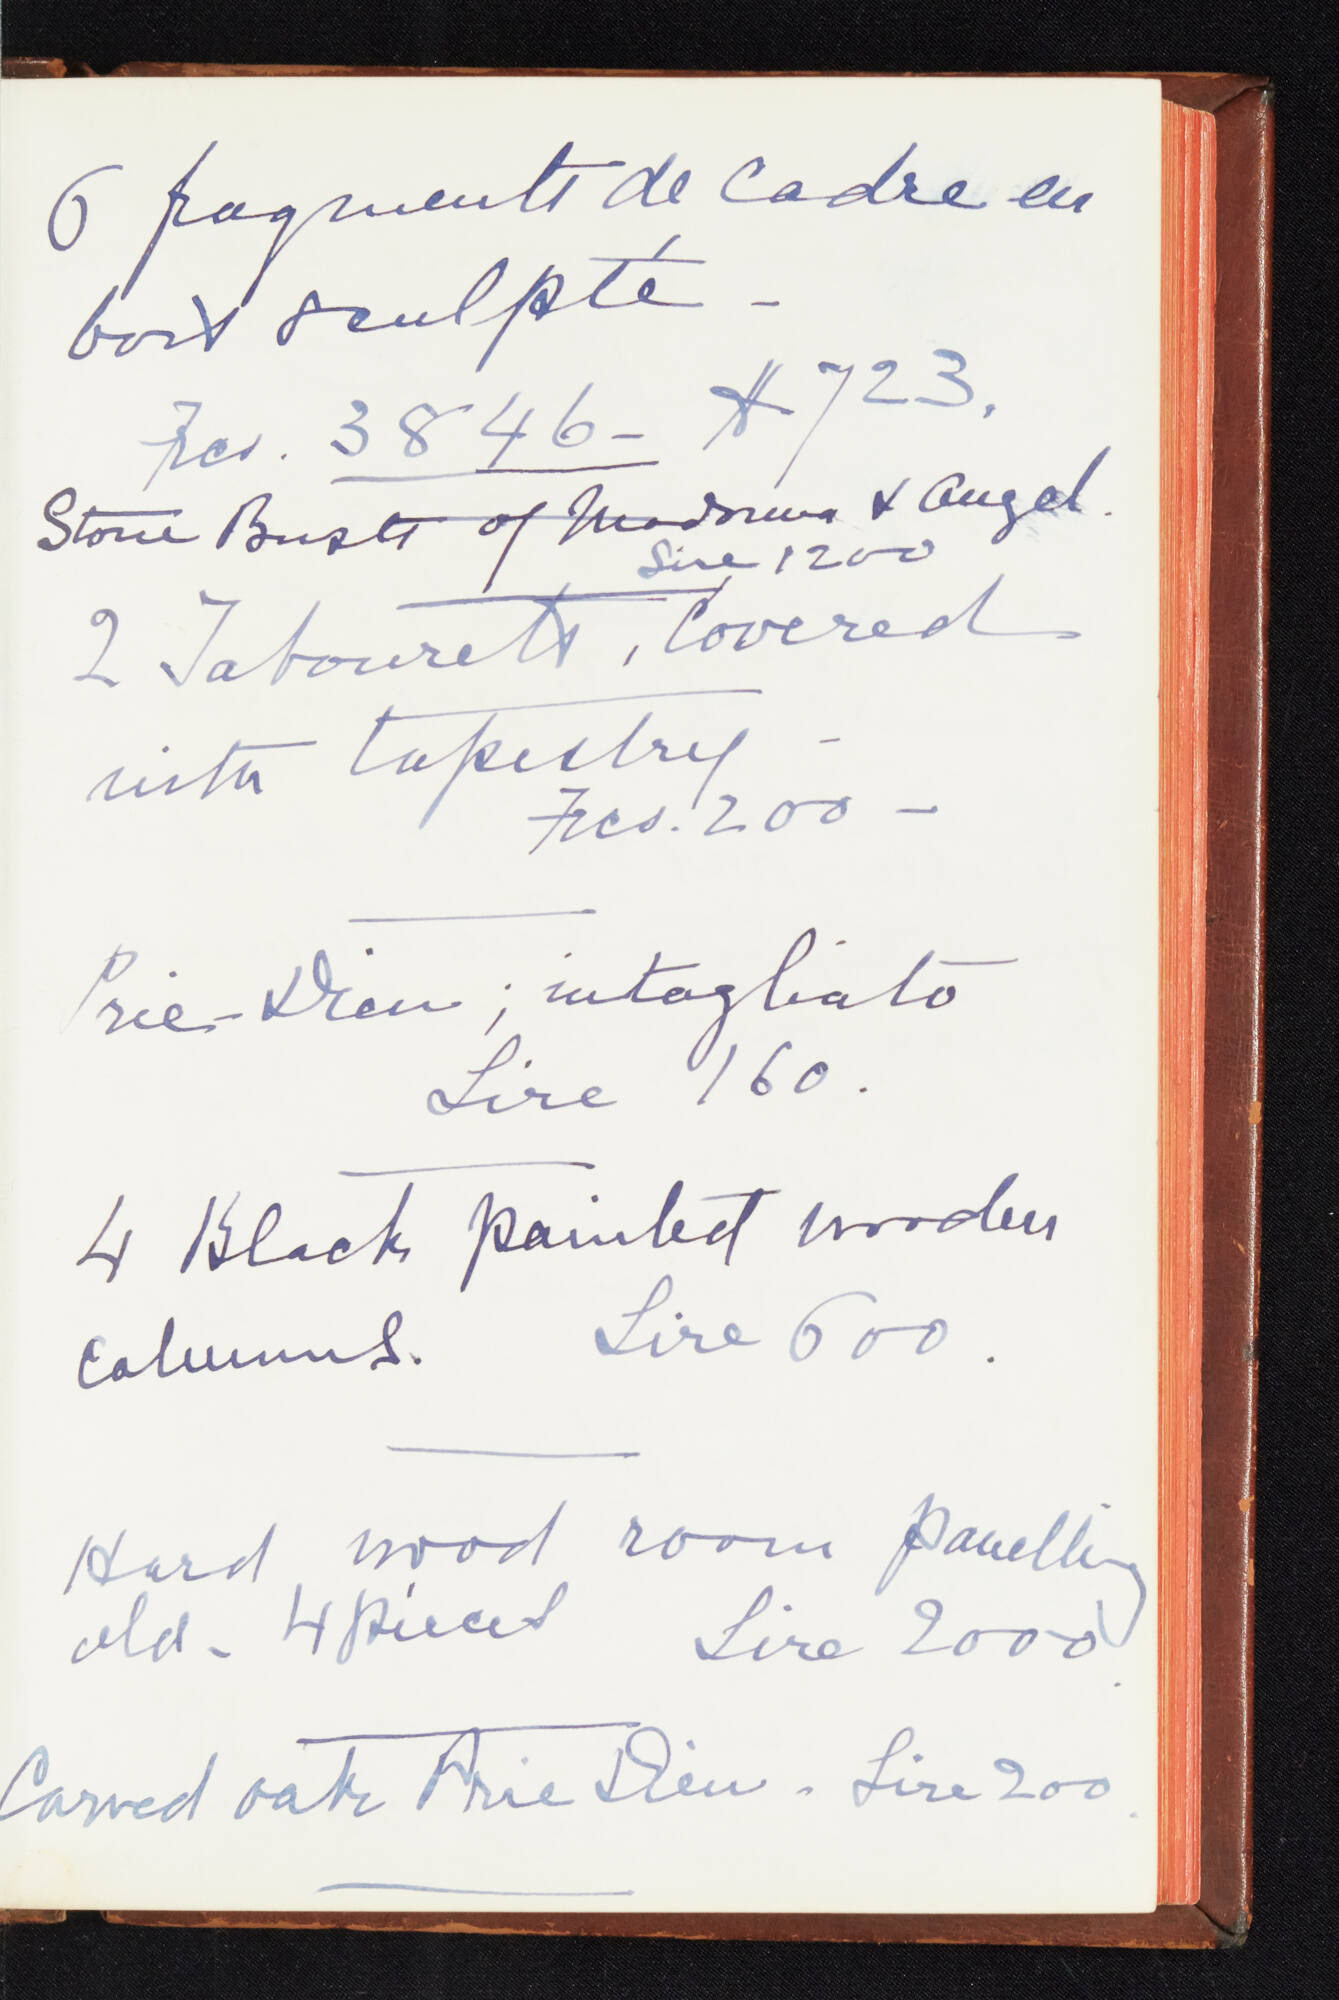 6 fragments de Cadre en
bois sculpté -
Frcs. 3846 - # 723.
Stone Busts of Madonna & Angel.
Lire 1200
2 Tabourets, Covered
with tapestry -
Frcs. 200 -
Prie-Dieu ; intagliato
Lire 160.
4 Black painted wooden
columns. Lire 600.
Hard wood room panelling
old - 4 pieces Lire 2000.
Carved oak Prie Dieu - Lire 200.